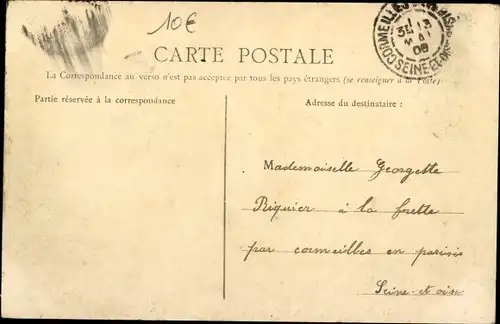 10€
CORMEILLES EN PARISIS
SEINE-ET-OISE
CARTE POSTALE
La Correspondance au verso n'est pas acceptée par tous les pays étrangers (se renseigner à la Poste)
Partie réservée à la correspondance
Adresse du destinataire :
Mademoiselle Georgette
Riquier à la frette
par cormeilles en parisis
Seine et oise